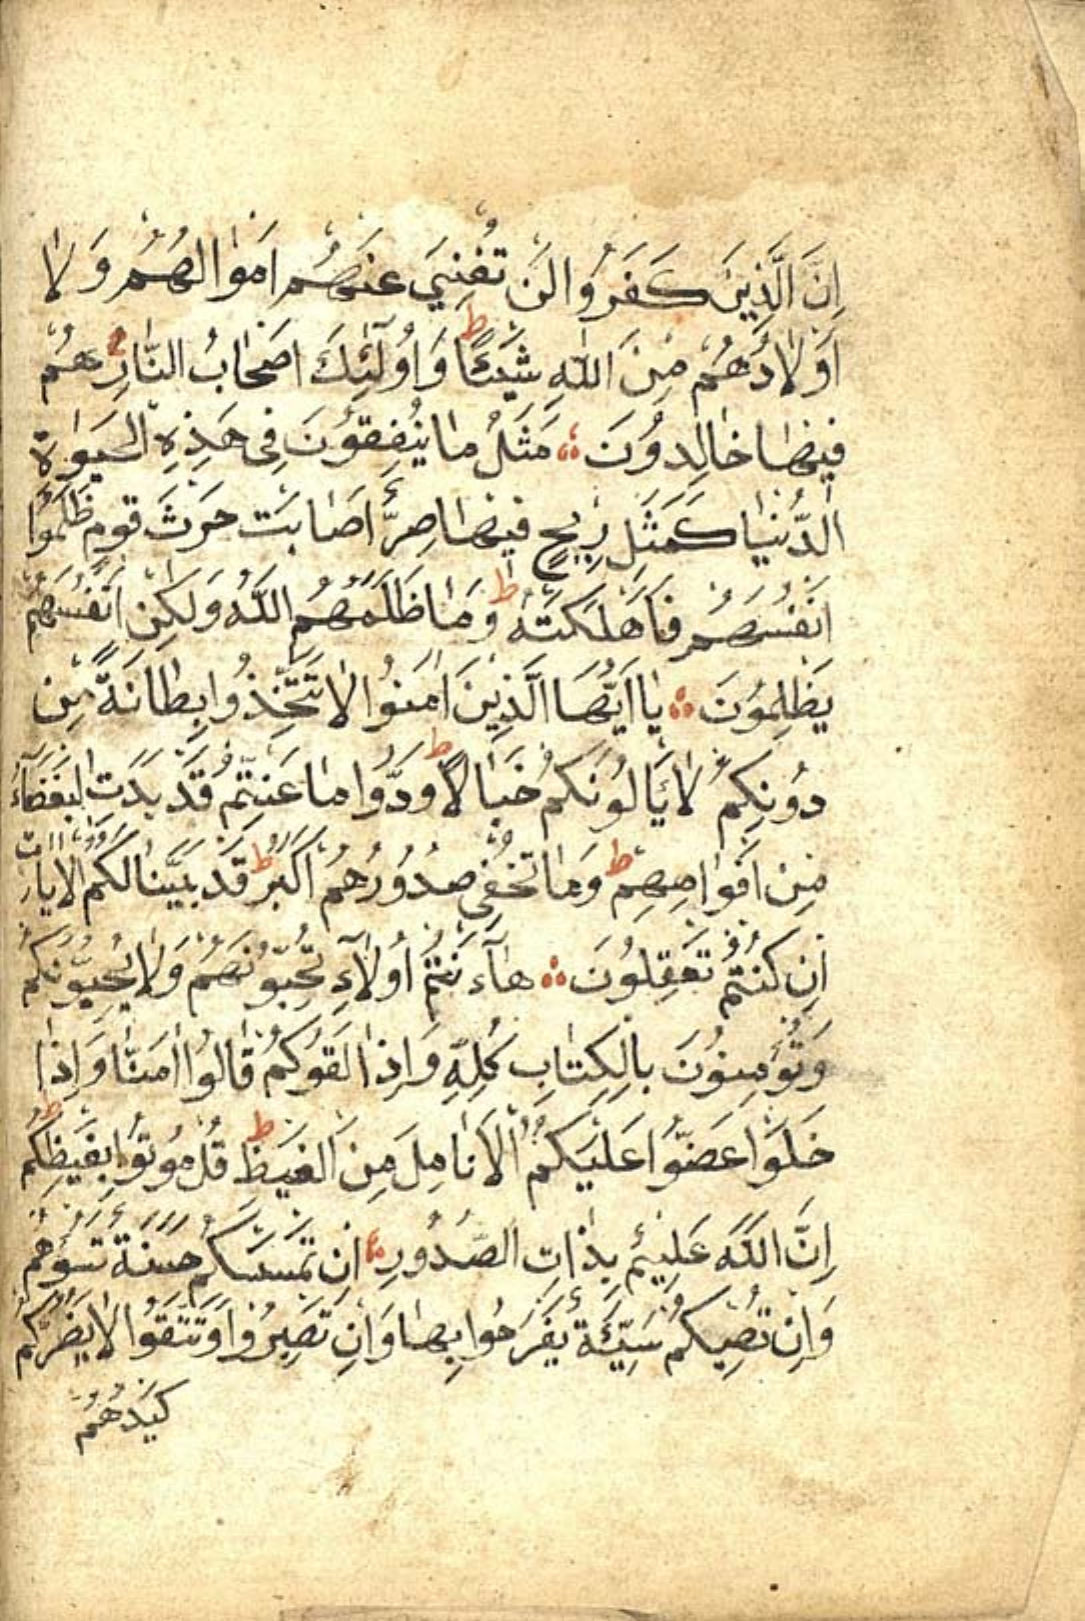 اِنَّ الَّذِينَ كَفَرُوا لَنْ تُغْنِيَ عَنْهُمْ اَمْوَالُهُمْ وَلَا
اَوْلَادُهُمْ مِنَ اللّٰهِ شَيْئًا ط وَاُولٰٓئِكَ اَصْحَابُ النَّارِ هُمْ
فِيهَا خَالِدُونَ ؞ مَثَلُ مَا يُنْفِقُونَ فِي هٰذِهِ الْحَيٰوةِ
الدُّنْيَا كَمَثَلِ رِيحٍ فِيهَا صِرٌّ اَصَابَتْ حَرْثَ قَوْمٍ ظَلَمُوا
اَنْفُسَهُمْ فَاَهْلَكَتْهُ ط وَمَا ظَلَمَهُمُ اللّٰهُ وَلٰكِنْ اَنْفُسَهُمْ
يَظْلِمُونَ ؞ يَا اَيُّهَا الَّذِينَ اٰمَنُوا لَا تَتَّخِذُوا بِطَانَةً مِنْ
دُونِكُمْ لَا يَأْلُونَكُمْ خَبَالًا ط وَدُّوا مَا عَنِتُّمْ قَدْ بَدَتِ الْبَغْضَٓاءُ
مِنْ اَفْوَاهِهِمْ ط وَمَا تُخْفِي صُدُورُهُمْ اَكْبَرُ ط قَدْ بَيَّنَّا لَكُمُ الْاٰيَاتِ
اِنْ كُنْتُمْ تَعْقِلُونَ ؞ هَٓاءَنْتُمْ اُولَٓاءِ تُحِبُّونَهُمْ وَلَا يُحِبُّونَكُمْ
وَتُؤْمِنُونَ بِالْكِتَابِ كُلِّهِ وَاِذَا لَقُوكُمْ قَالُوا اٰمَنَّا وَاِذَا
خَلَوْا عَضُّوا عَلَيْكُمُ الْاَنَامِلَ مِنَ الْغَيْظِ ط قُلْ مُوتُوا بِغَيْظِكُمْ ط
اِنَّ اللّٰهَ عَلِيمٌ بِذَاتِ الصُّدُورِ ؞ اِنْ تَمْسَسْكُمْ حَسَنَةٌ تَسُؤْهُمْ
وَاِنْ تُصِبْكُمْ سَيِّئَةٌ يَفْرَحُوا بِهَا وَاِنْ تَصْبِرُوا وَتَتَّقُوا لَا يَضُرُّكُمْ
كَيْدُهُمْ